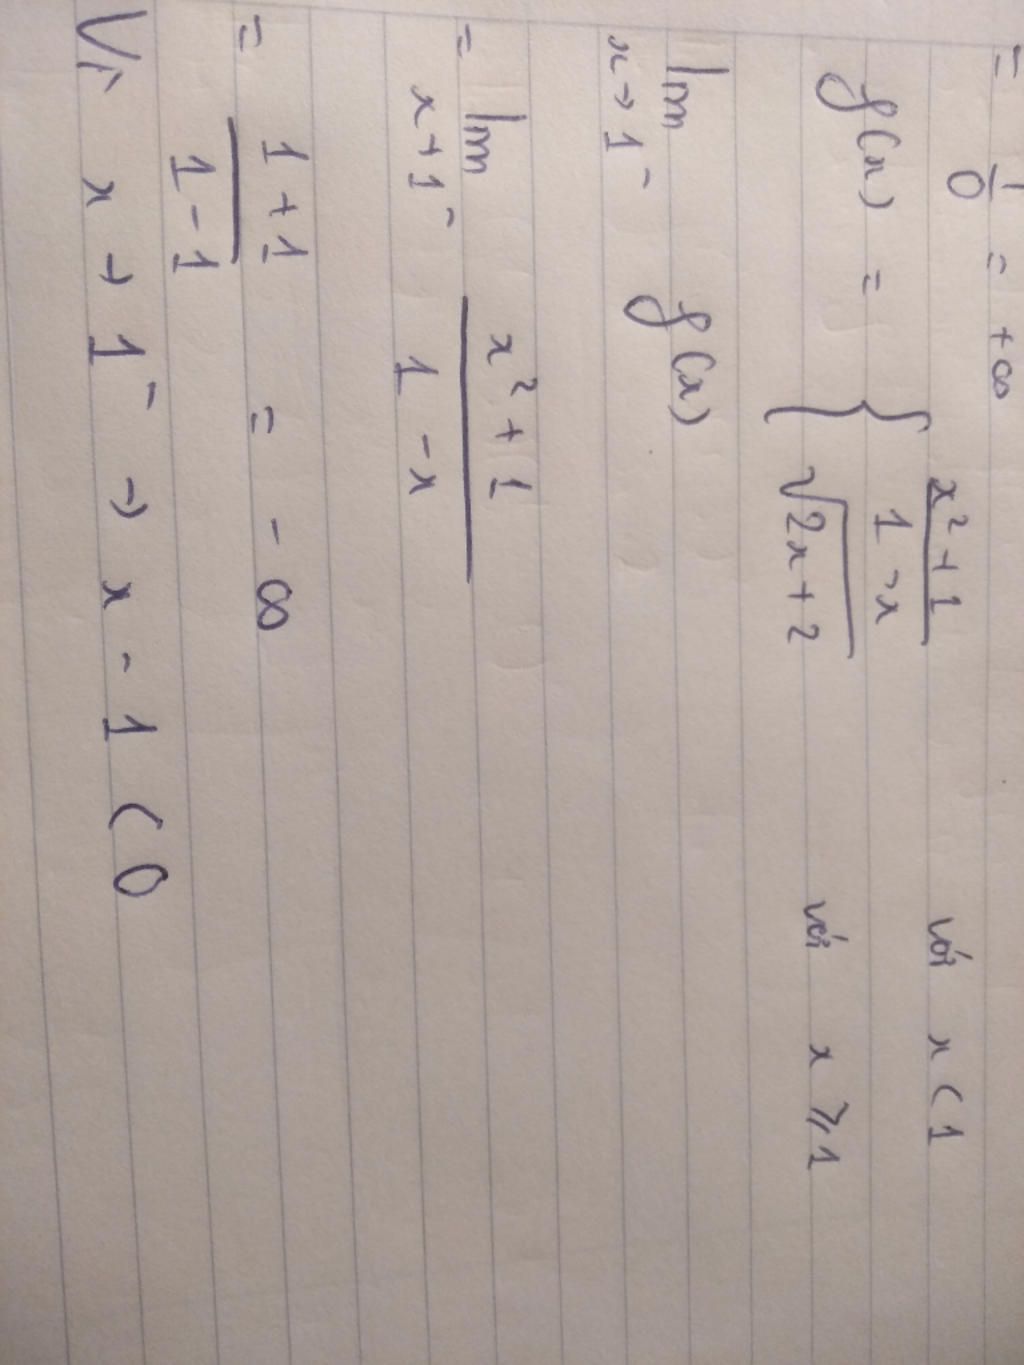 = 1/0 = +∞
f(x) = { (x² + 1)/(1 - x) với x < 1
√(2x + 2) với x ≥ 1
lim x→1⁻ f(x)
= lim x→1⁻ (x² + 1)/(1 - x)
= (1 + 1)/(1 - 1) = - ∞
Vì x → 1⁻ → x - 1 < 0